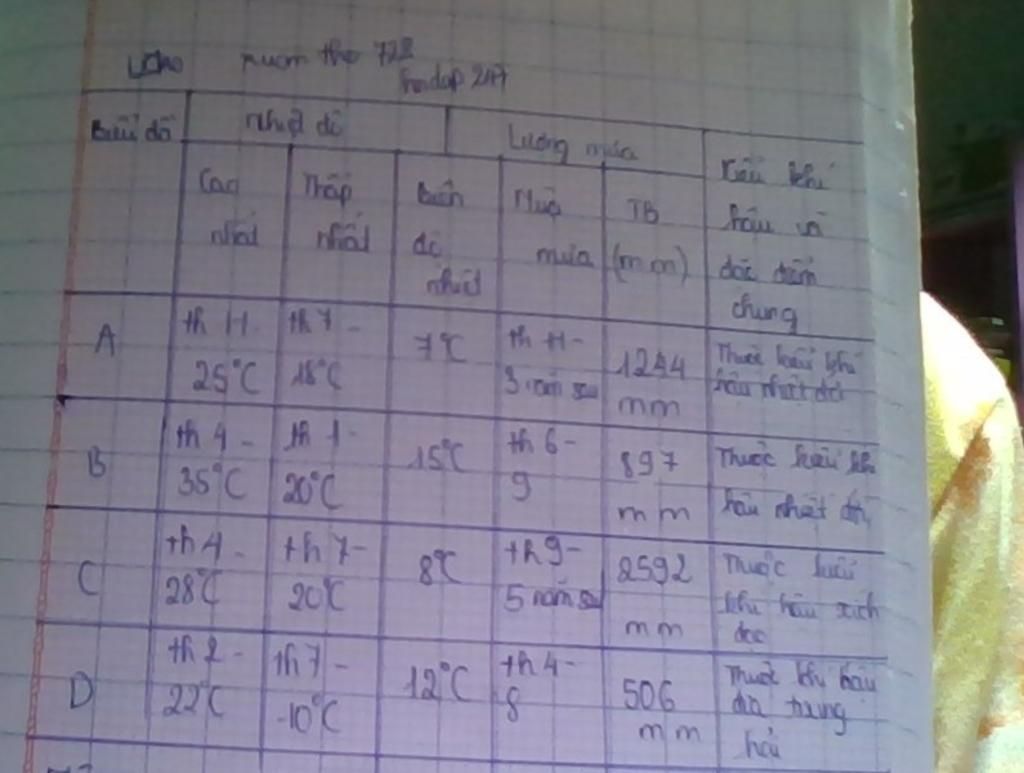 hoidap 247
Biểu đồ
nhiệt độ
Lượng mưa
Kiểu khí
hậu và
đặc điểm
chung
Cao
nhất
Thấp
nhất
Biên
độ
nhiệt
Mùa
mưa
TB
(mm)
A
th 11-
25°C
th 7-
18°C
7°C
th 11-
3 năm sau
1244
mm
Thuộc kiểu khí
hậu nhiệt đới
B
th 4-
35°C
th 1-
20°C
15°C
th 6-
9
897
mm
Thuộc kiểu khí
hậu nhiệt đới
C
th 4-
28°C
th 7-
20°C
8°C
th 9-
5 năm sau
2592
mm
Thuộc kiểu
khí hậu xích
đạo
D
th 2-
22°C
th 7-
-10°C
12°C
th 4-
8
506
mm
Thuộc khí hậu
địa trung
hải